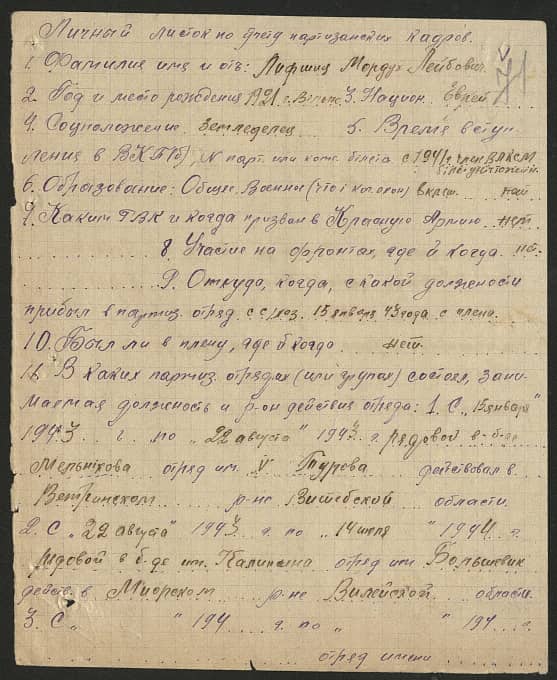 Личный листок по учету партизанских кадров.
1. Фамилия имя и отч: Лифшиц Мордух Лейбович
2. Год и место рождения 1921 г. 3. Национ. Еврей
4. Соцположение Земледелец 5. Время вступ-
ления в ВКП(б), N парт. или комс. билета с 1941 г. член ВЛКСМ
6. Образование: Общее. Военн (что и когда окон) нет
7. Каким ГВК и когда призван в Красную Армию нет
8. Участие на фронтах, где и когда. не.
9. Откуда, когда, с какой должности
прибыл в партиз. отряд. с 15 января 43 года с плена.
10. Был ли в плену, где и когда нет
11. В каких партиз. отрядах (или групах) состоял, зани-
маемая должность и р-он действия отряда: 1. С „15 января"
1943 г. по „22 августа" 1943 г. рядовой в б-де
Мельникова отряд им. Турова действовал в
Ветринском р-не Витебской области.
2. С „22 августа" 1943 г. по „14 июля" 1944 г.
рядовой в б-де им. Калинина отряд им Большевик
действ. в Миорском р-не Вилейской области.
3. С „ " 194 г. по „ " 194 г.
отряд имени